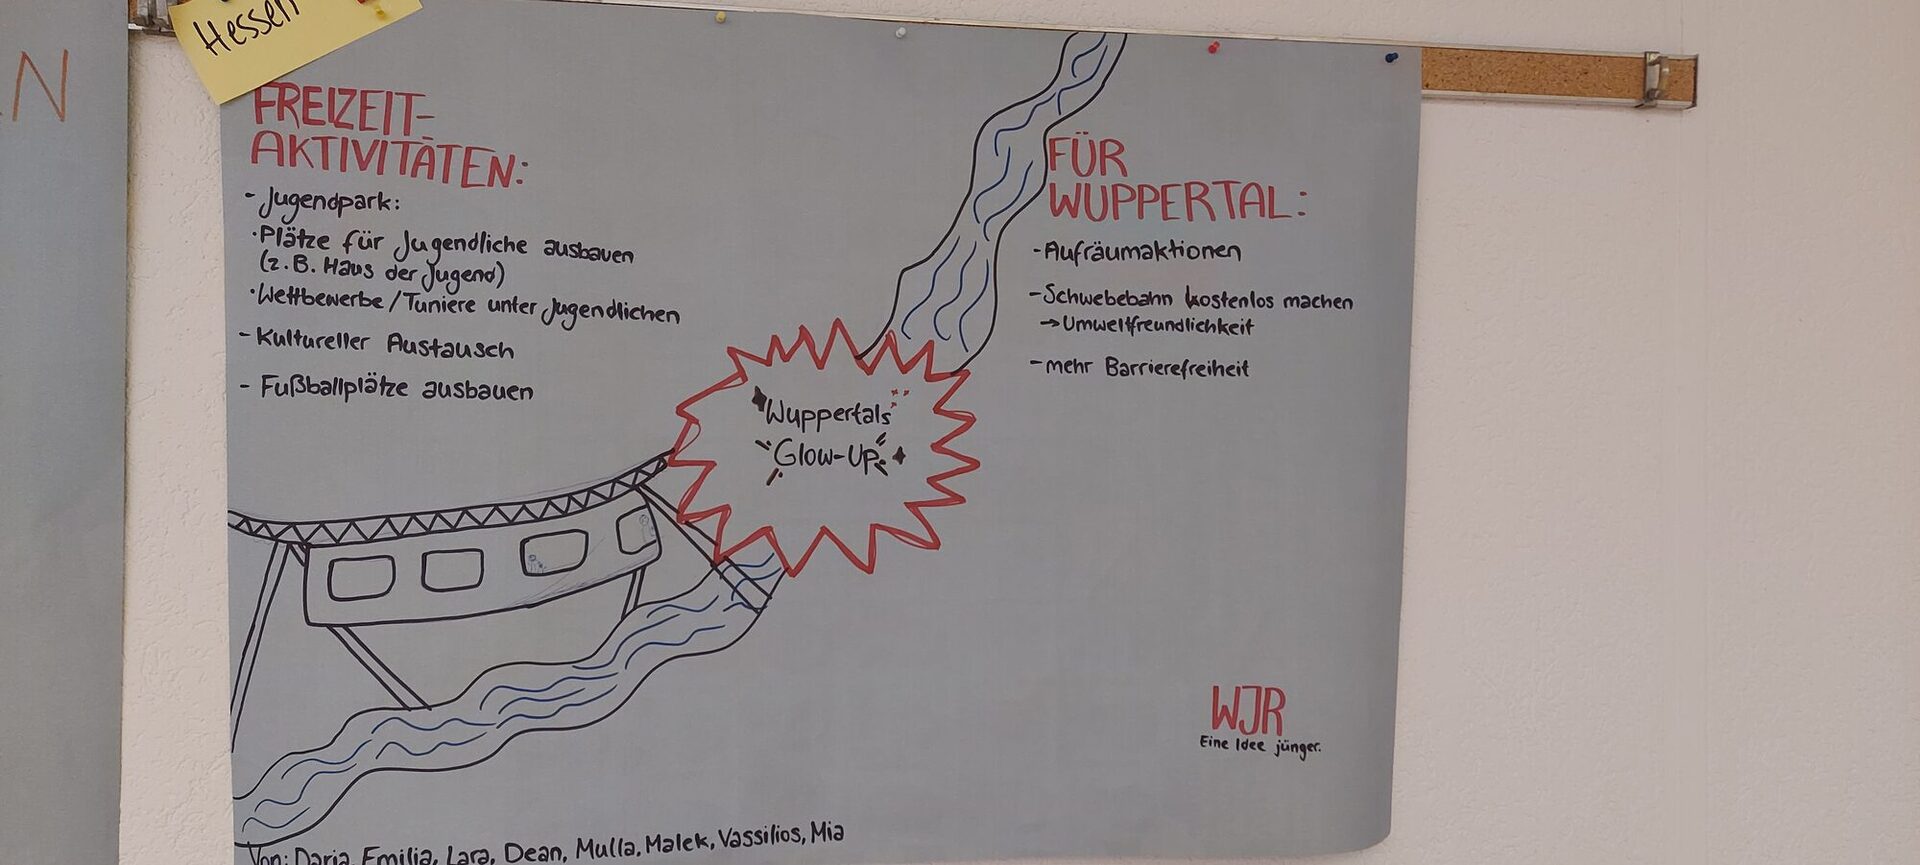 N
Hessen
FREIZEIT-
AKTIVITÄTEN:
- Jugendpark:
·Plätze für Jugendliche ausbauen
(z.B. Haus der Jugend)
·Wettbewerbe/Tuniere unter Jugendlichen
- Kultureller Austausch
- Fußballplätze ausbauen
FÜR
WUPPERTAL:
-Aufräumaktionen
-Schwebebahn kostenlos machen
→Umweltfreundlichkeit
-mehr Barrierefreiheit
Wuppertals
Glow-Up
WJR
Eine Idee jünger.
Von: Daria, Emilia, Lara, Dean, Mulla, Malek, Vassilios, Mia